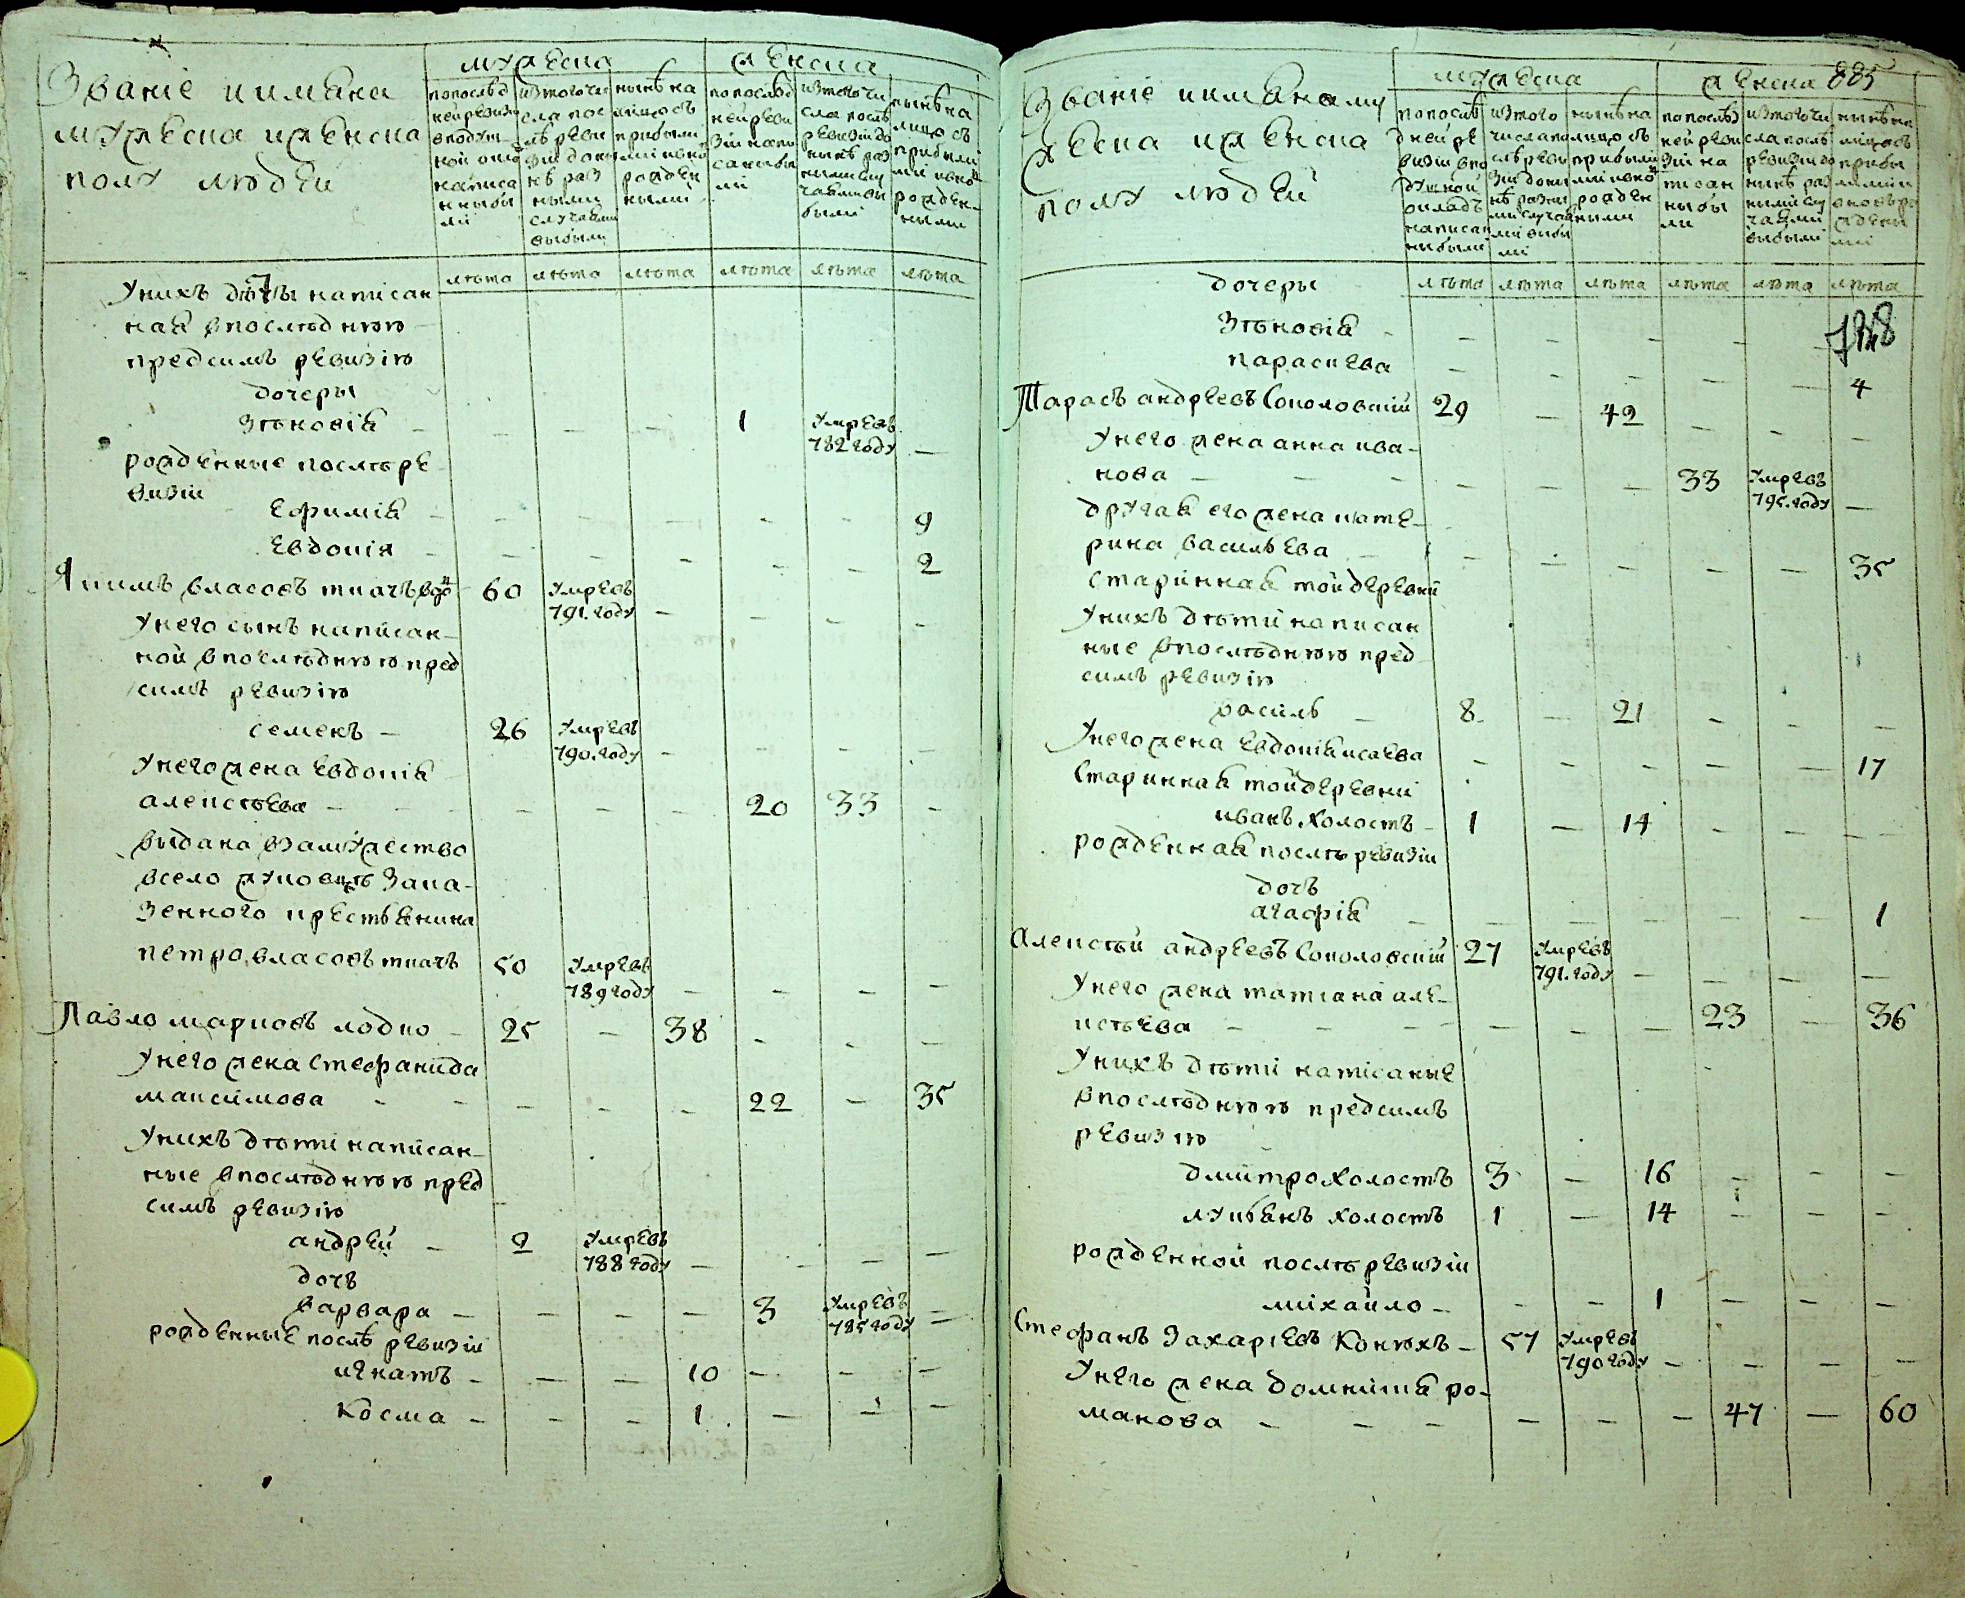 Званіе и имяна
мужеска и женска
полу людей
мужеска
женска
по послѣд
ней ревизи
в подуш
ной окла
написа
нныбы
ли
изтого чи
сла пос
лѣ реви
зіи доны
нѣ раз
ными
случаями
выбыли
нынѣ на
лицо съ
прибыли
ми и вно
рожден
ными
по послѣд
ней реви
зіи напи
саны бы
ли
изтого чи
сла послѣ
ревизіи до
нынѣ раз
ными слу
чаями вы
были
нынѣ на
лицо съ
прибылы
ми и вно
рожден-
ными
лѣта лѣта лѣта лѣта лѣта лѣта
У нихъ дѣти написан
ная в послѣднюю
пред симъ ревизію
дочеры
Зѣновія - - - - 1 умре въ
782 году -
рожденные послѣ ре
визіи
Ефимія - - - - - - 9
Евдокія - - - - - - 2
Якимъ власовъ ткачъ вдо - 60 умре въ
791. году - - - -
У него сынъ написан-
ной в послѣднюю пред
симъ ревизію
семенъ - 26 умре въ
790. году - - - -
У него жена Евдокія
алексѣева - - - - 20 33 -
выдана взамужество
в село жуковцѣ за ка-
зенного крестьянина
петро власовъ ткачъ 50 умре въ
789 году - - - -
Павло марковъ лодко - 25 - 38 - - -
У него жена Стефанида
максимова - - - - - 22 - 35
У нихъ дѣти написан-
ные в послѣднюю пред
симъ ревизію
андрей - 2 умре въ
788 году - - - -
дочь
варвара - - - - 3 умре въ
785 году -
рожденные послѣ ревизіи
игнатъ - - - 10 - - -
Косма - - - 1 - - -
885
Званіе и имяна му
жеска и женска
полу людей
мужеска
женска
по послѣ
дней ре
визіи впо
душной
окладъ
написан
ни были
изтого
числа по
слѣ реви
зіи доны
нѣ разны
ми случая
ми выбы
ли
нынѣ на
лицо съ
прибылы
ми и вно
рожден
ными
по послѣд
ней реви
зіи на
писан
ны бы
ли
изтого чи
сла послѣ
ревизіи до
нынѣ раз
ными слу
чаями
выбыли
нынѣ на
лицо съ
прибы
лыми и
вновь ро
ждены
ми
лѣта лѣта лѣта лѣта лѣта лѣта
дочеры
Зѣновія - - - - - -
параскева - - - - - 4
Тарасъ андреевъ Соколовскій 29 - 42 - - -
У него жена анна ива-
нова - - - - - - 33 умре въ
795. году -
другая его жена кате-
рина василъева - - - - - - 35
Старинная той деревни
У нихъ дѣти написан
ные в послѣднюю пред
симъ ревизію
василь - 8 - 21 - - -
У него жена Евдокія исаева - - - - - 17
Старинная той деревни
иванъ холостъ - 1 - 14 - - -
рожденная послѣ ревизіи
дочъ
агафія - - - - - - 1
Алексѣй андреевъ Соколовскій 27 умре въ
791. году - - - -
У него жена татіана але-
ксѣева - - - - - - 23 - 36
У нихъ дѣти написаные
в послѣднюю пред симъ
ревизію
дмитро холостъ 3 - 16 - - -
лукьянъ холостъ 1 - 14 - - -
рожденной послѣ ревизіи
михайло - - - 1 - - -
Стефанъ Захаріевъ Конюхъ - 57 умре въ
790 году - - - -
У него жена домникія ро-
манова - - - - - - 47 - 60